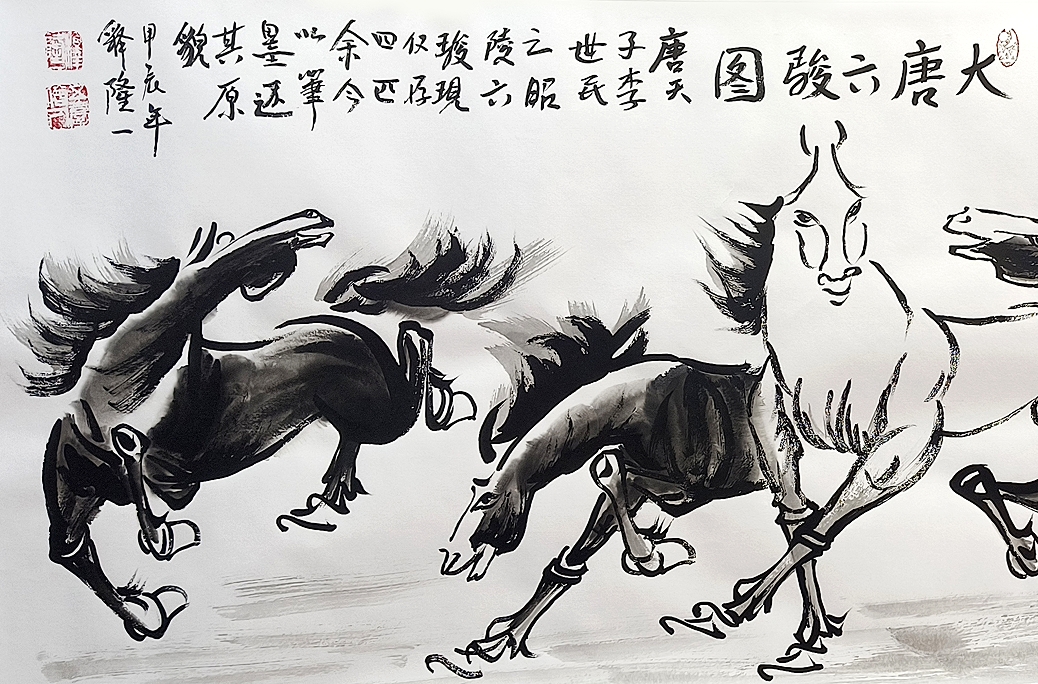 大唐六骏图
唐天
子李
世民
之昭
陵六
骏現
仅存
四匹
余今
以筆
墨还
其原
貌
甲辰年
释隆一